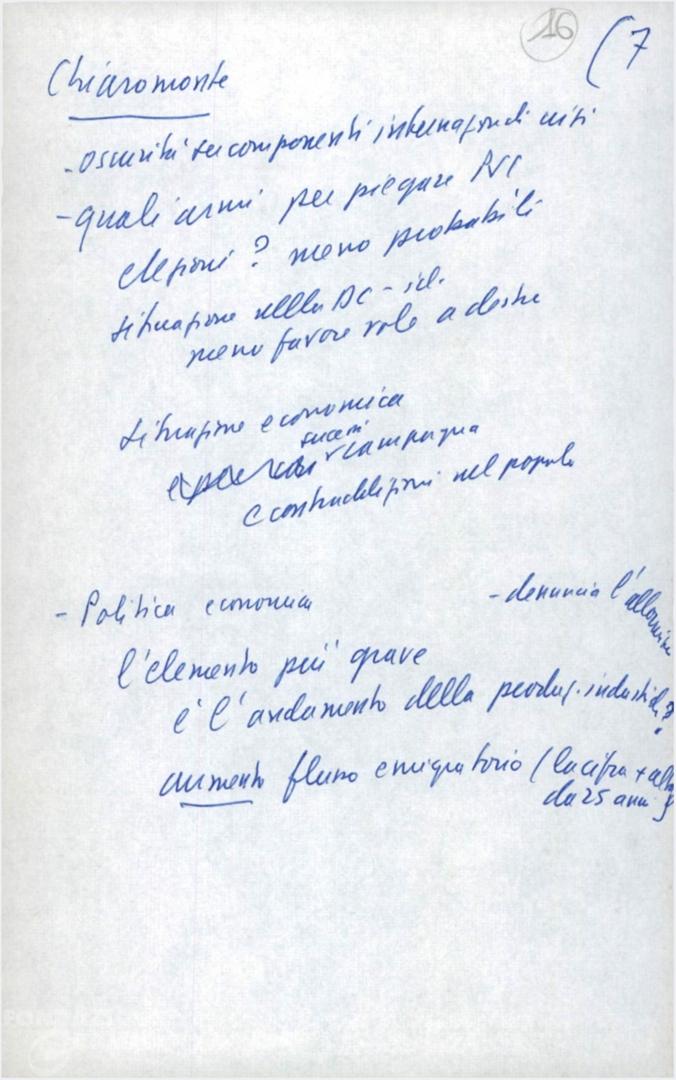 16 (7
Chiaromonte
- oscurità su componenti internazionali crisi
- quali armi per piegare PCI
elezioni? meno probabili
situazione nella DC -
meno favorevole a destra
situazione economica
successi
campagna
e contraddizioni nel popolo
- Politica economica
- denuncia l'allarmismo
l'elemento più grave
è l'andamento della produz. industriale
aumento flusso emigratorio (la cifra + alta
da 25 anni)